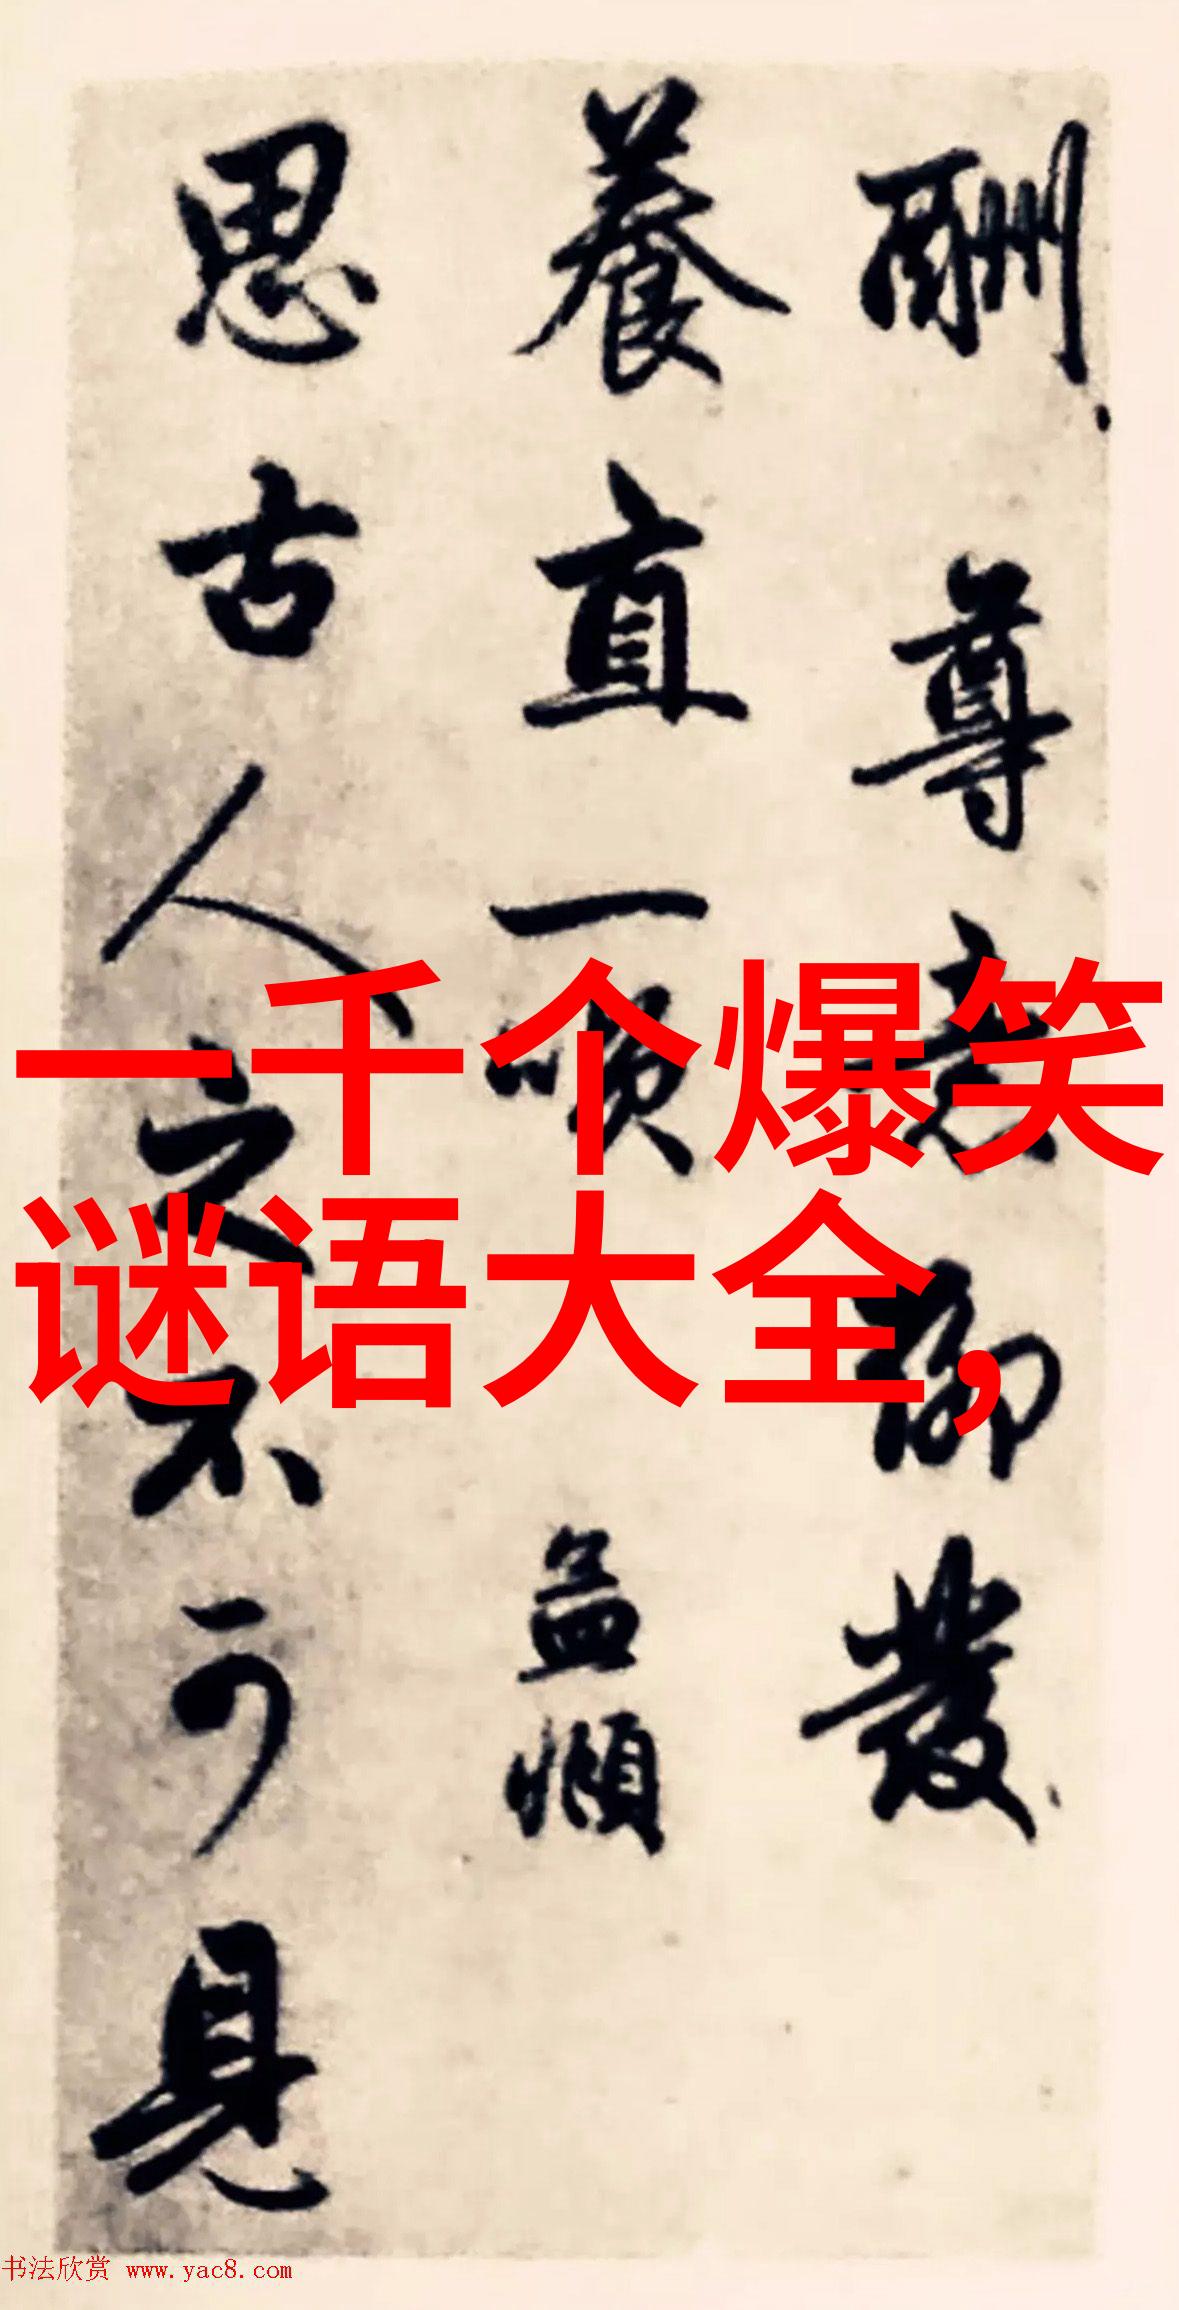 酬尊意聊發
養直一 孟頫
思古人之不可見
一千个爆笑
谜语大全,
书法欣赏 www.yac8.com